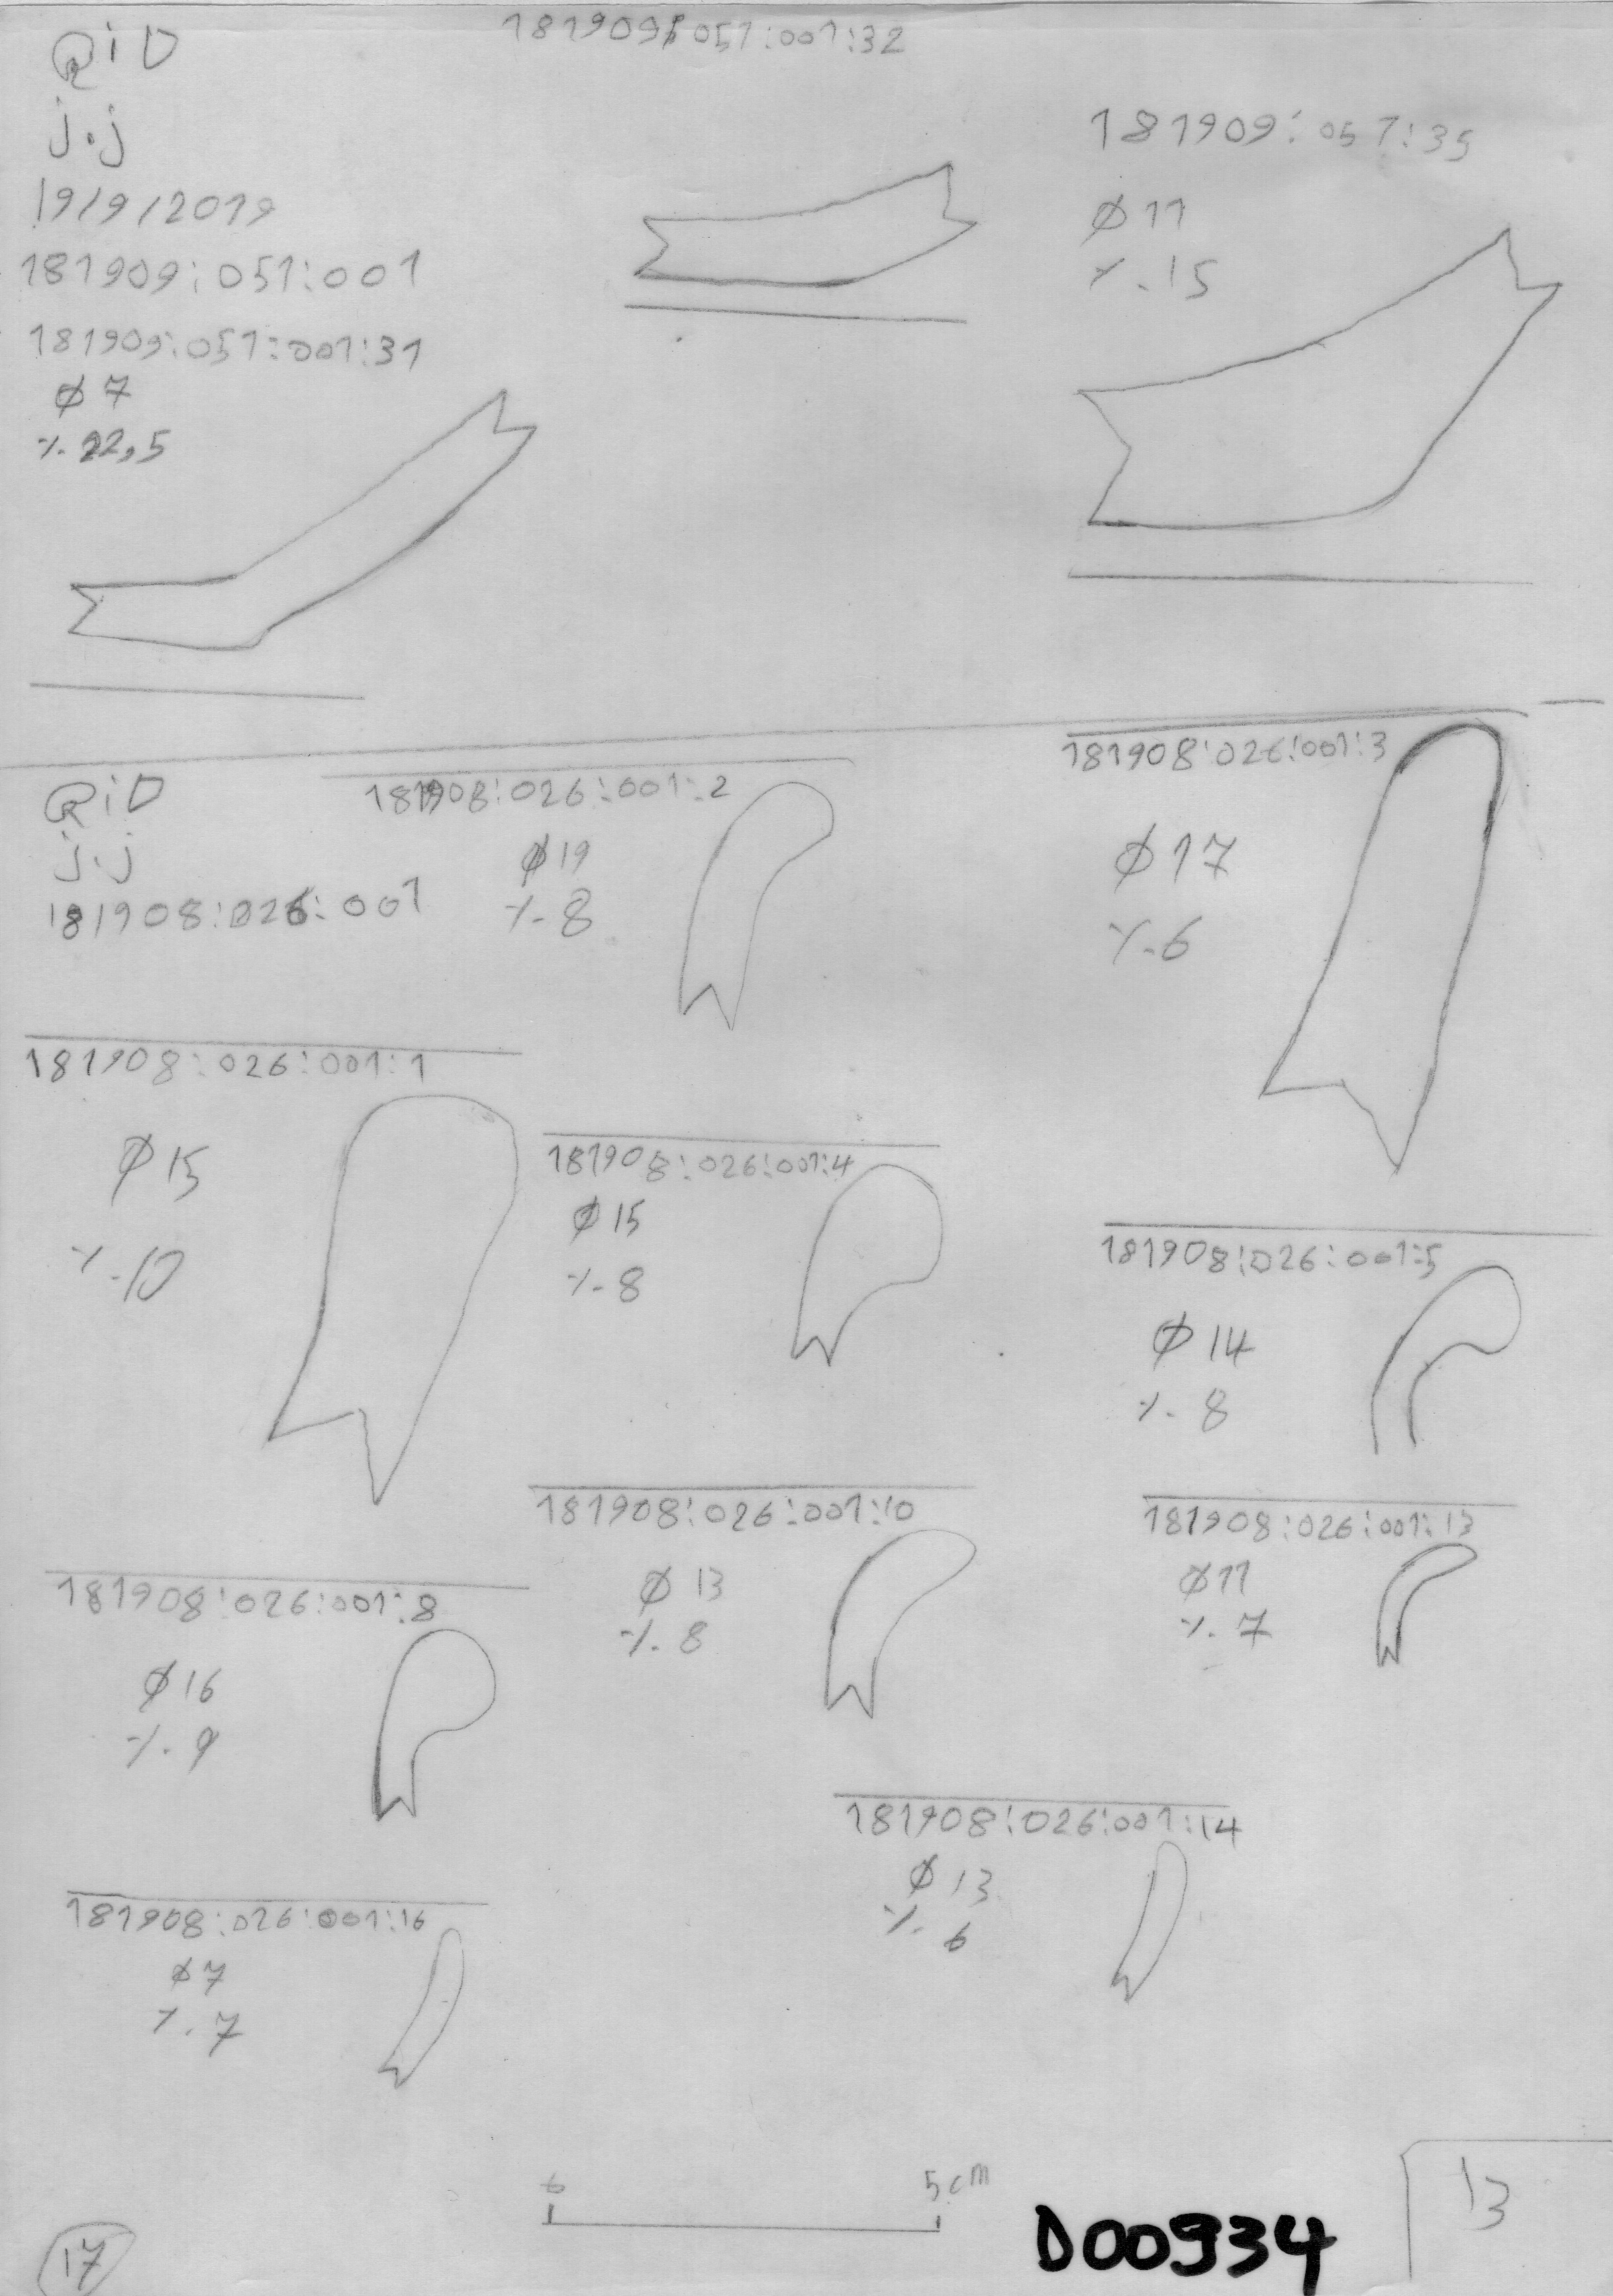 QiD
j.j
19/9/2019
181909:051:001
181909:051:001:31
Ø 7
%. 22,5
181909:051:001:32
181909:051:35
Ø 11
%. 15
QiD
j.j
181908:026:001
181908:026:001:2
Ø 19
%. 8
181908:026:001:3
Ø 17
%. 6
181908:026:001:1
Ø 15
%. 10
181908:026:001:4
Ø 15
%. 8
181908:026:001:5
Ø 14
%. 8
181908:026:001:10
Ø 13
%. 8
181908:026:001:13
Ø 11
%. 7
181908:026:001:8
Ø 16
%. 9
181908:026:001:14
Ø 13
%. 6
181908:026:001:16
Ø 7
%. 7
5 cm
D00934
13
17